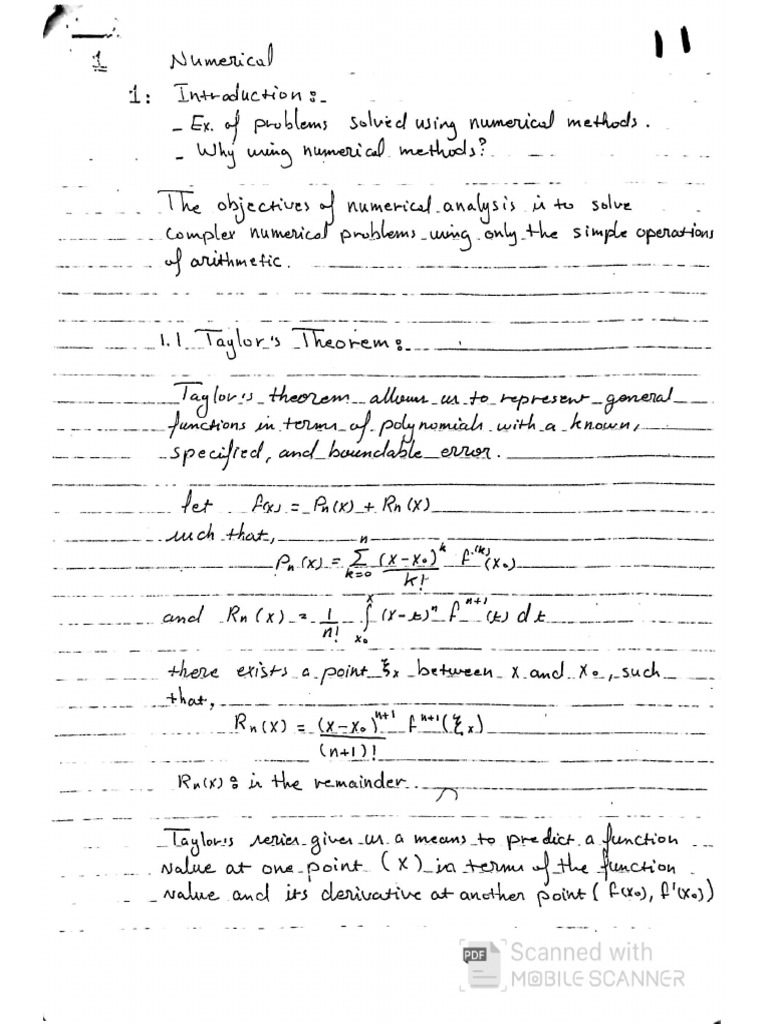 11
1 Numerical
1: Introduction:-
- Ex. of problems solved using numerical methods.
- Why using numerical methods?
The objectives of numerical analysis is to solve
complex numerical problems using only the simple operations
of arithmetic.
1.1 Taylor's Theorem:
Taylor's theorem allows us to represent general
functions in terms of polynomials with a known,
specified, and boundable error.
let f(x) = Pn(x) + Rn(x)
such that,
Pn(x) = Σ_{k=0}^{n} (x-x₀)^k / k! f^(k)(x₀)
and Rn(x) = 1/n! ∫_{x₀}^{x} (x-t)^n f^{n+1}(t) dt
there exists a point ξx between x and x₀, such
that,
Rn(x) = (x-x₀)^{n+1} / (n+1)! f^{n+1}(ξx)
Rn(x): is the remainder.
Taylor's series gives us a means to predict a function
value at one point (x) in terms of the function
value and its derivative at another point (f(x₀), f'(x₀))
PDF Scanned with
MOBILE SCANNER